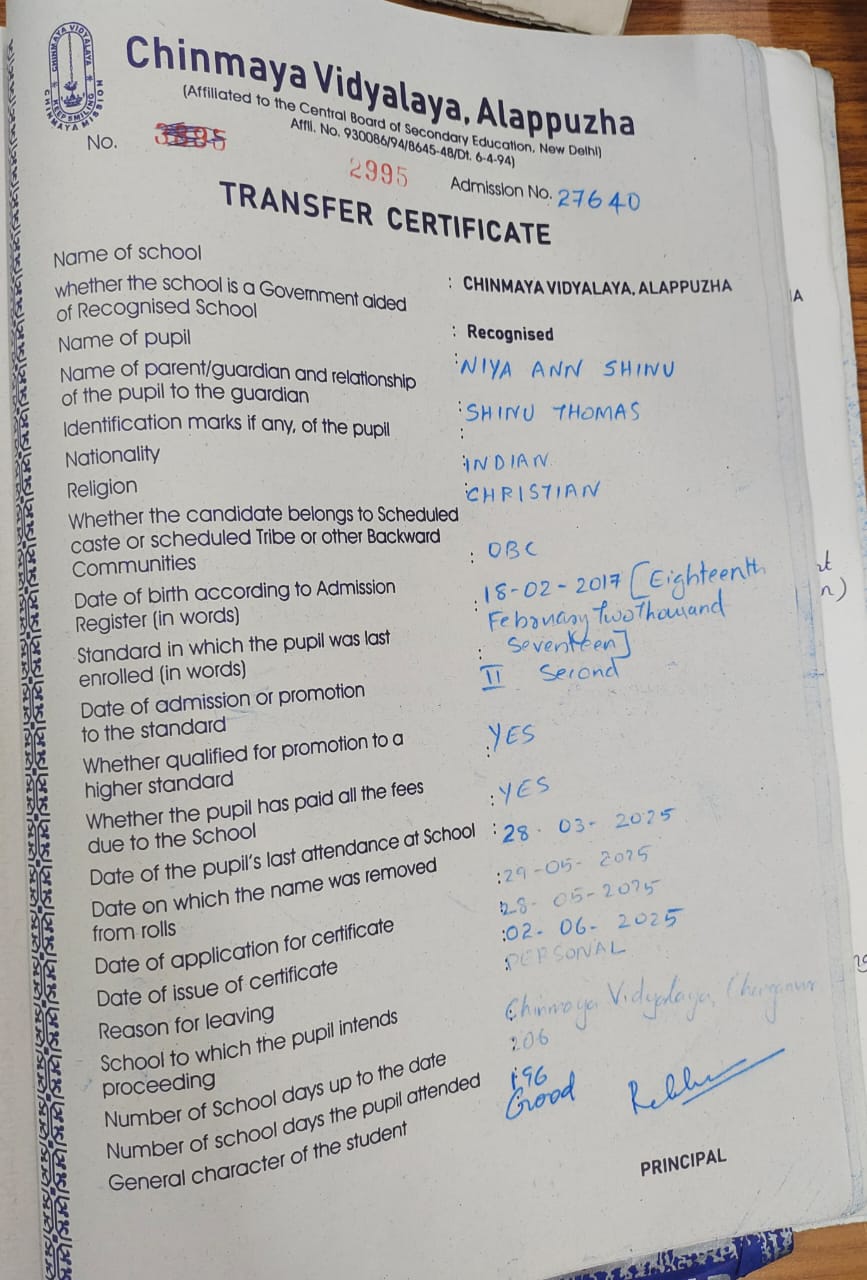 CHINMAYA VIDYALAYA
KEEP SMILING
CHINMAYA MISSION
Chinmaya Vidyalaya, Alappuzha
(Affiliated to the Central Board of Secondary Education, New Delhi)
Affli. No. 930086/94/B645-48/Dt. 6-4-94)
No.
2995
Admission No. 27640
TRANSFER CERTIFICATE
Name of school
: CHINMAYA VIDYALAYA, ALAPPUZHA
whether the school is a Government aided
of Recognised School
: Recognised
Name of pupil
: NIYA ANN SHINU
Name of parent/guardian and relationship
of the pupil to the guardian
: SHINU THOMAS
Identification marks if any, of the pupil
:
Nationality
: INDIAN
Religion
: CHRISTIAN
Whether the candidate belongs to Scheduled
caste or scheduled Tribe or other Backward
Communities
: OBC
Date of birth according to Admission
Register (in words)
: 18-02-2017 [Eighteenth
February Two Thousand
Seventeen]
Standard in which the pupil was last
enrolled (in words)
: II Second
Date of admission or promotion
to the standard
Whether qualified for promotion to a
higher standard
: YES
Whether the pupil has paid all the fees
due to the School
: YES
Date of the pupil's last attendance at School
: 28-03-2025
Date on which the name was removed
from rolls
: 29-05-2025
Date of application for certificate
28-05-2025
Date of issue of certificate
: 02-06-2025
Reason for leaving
: PERSONAL
School to which the pupil intends
proceeding
Chinmaya Vidyalaya,
Number of School days up to the date
: 206
Number of school days the pupil attended
: 196
General character of the student
Good
PRINCIPAL